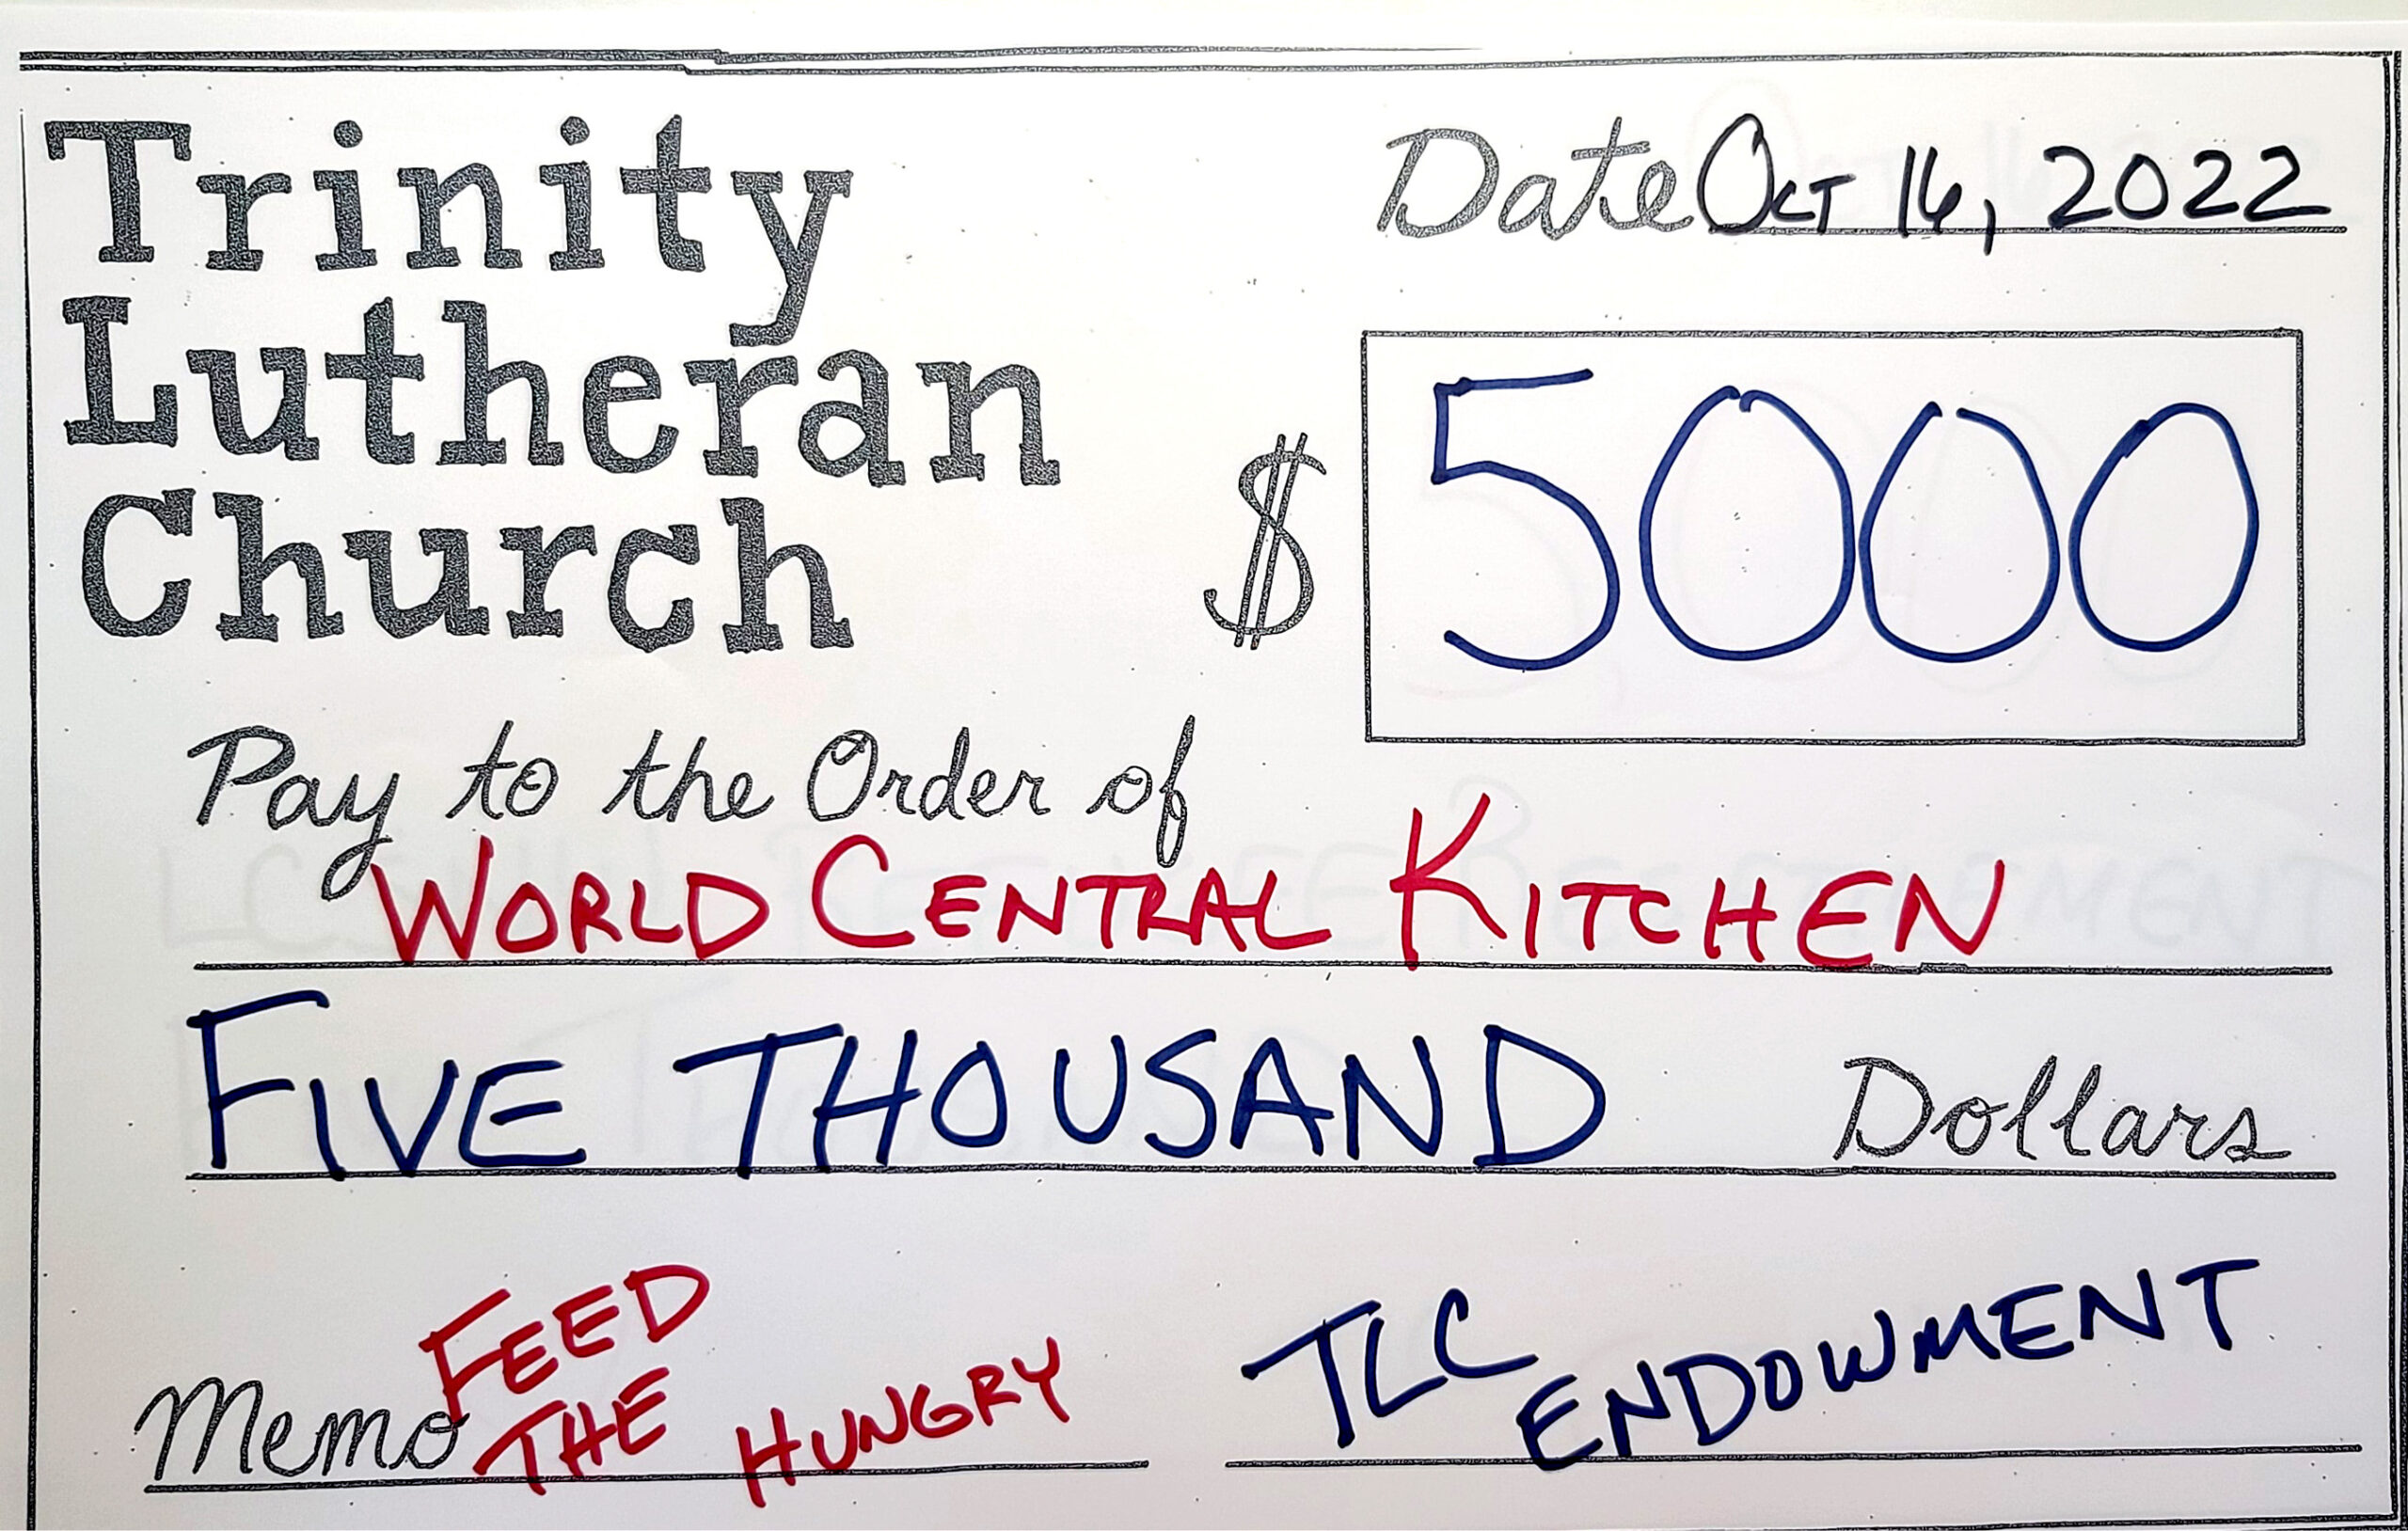 Trinity
Lutheran
Church
Date Oct 16, 2022
$ 5000
Pay to the Order of
WORLD CENTRAL KITCHEN
FIVE THOUSAND Dollars
Memo FEED THE HUNGRY
TLC ENDOWMENT